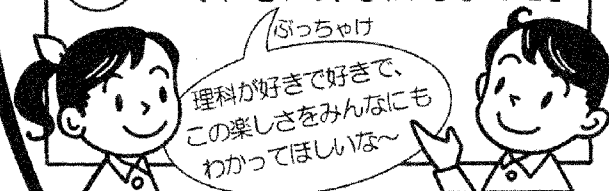 ぶっちゃけ
理科が好きで好きで、
この楽しさをみんなにも
わかってほしいな〜